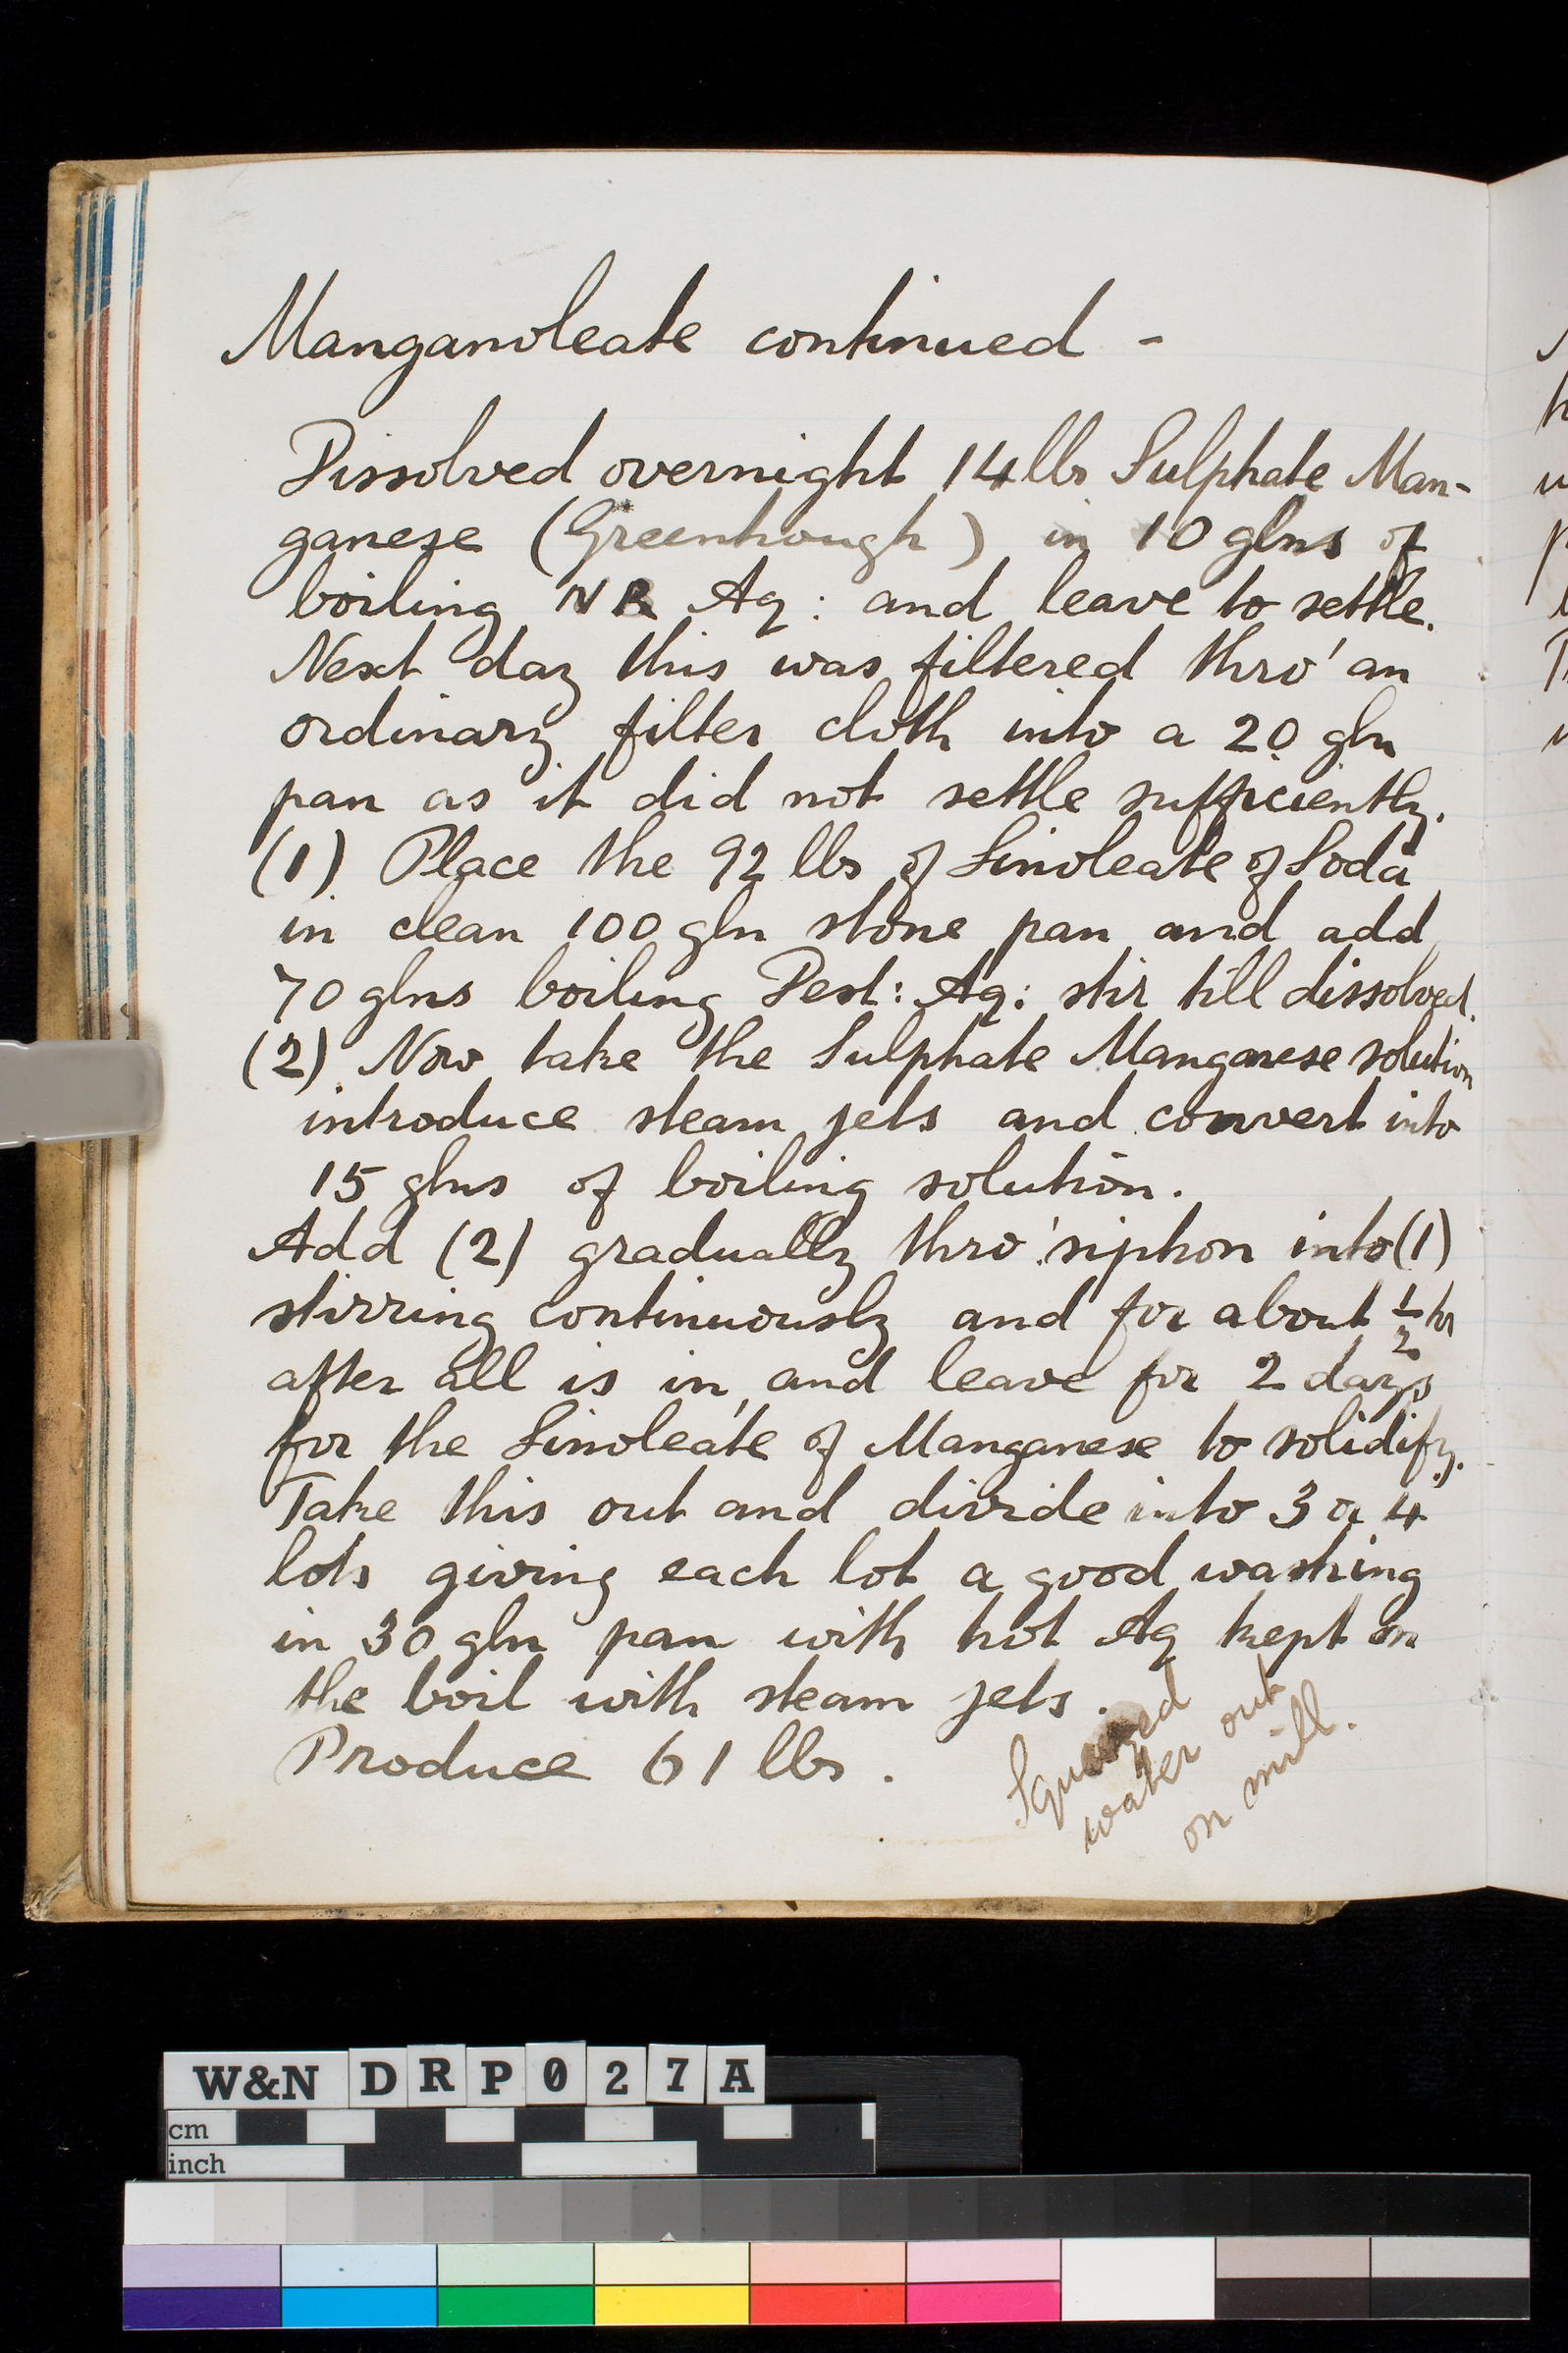 Manganoleate continued -
Dissolved overnight 14 lbs Sulphate Man-
ganese (Greenhough) in 10 glns of
boiling NR Aq: and leave to settle.
Next day this was filtered thro' an
ordinary filter cloth into a 20 gln
pan as it did not settle sufficiently.
(1) Place the 92 lbs of Linoleate of Soda
in clean 100 gln stone pan and add
70 glns boiling Dest: Aq: stir till dissolved.
(2) Now take the Sulphate Manganese solution
introduce steam jets and convert into
15 glns of boiling solution.
Add (2) gradually thro' siphon into (1)
stirring continuously and for about 1/2 hr
after all is in, and leave for 2 days
for the Linoleate of Manganese to solidify.
Take this out and divide into 3 or 4
lots giving each lot a good washing
in 30 gln pan with hot Aq kept on
the boil with steam jets.
Produce 61 lbs.
Squeezed
water out
on mill.
W&N DRP027A
cm
inch